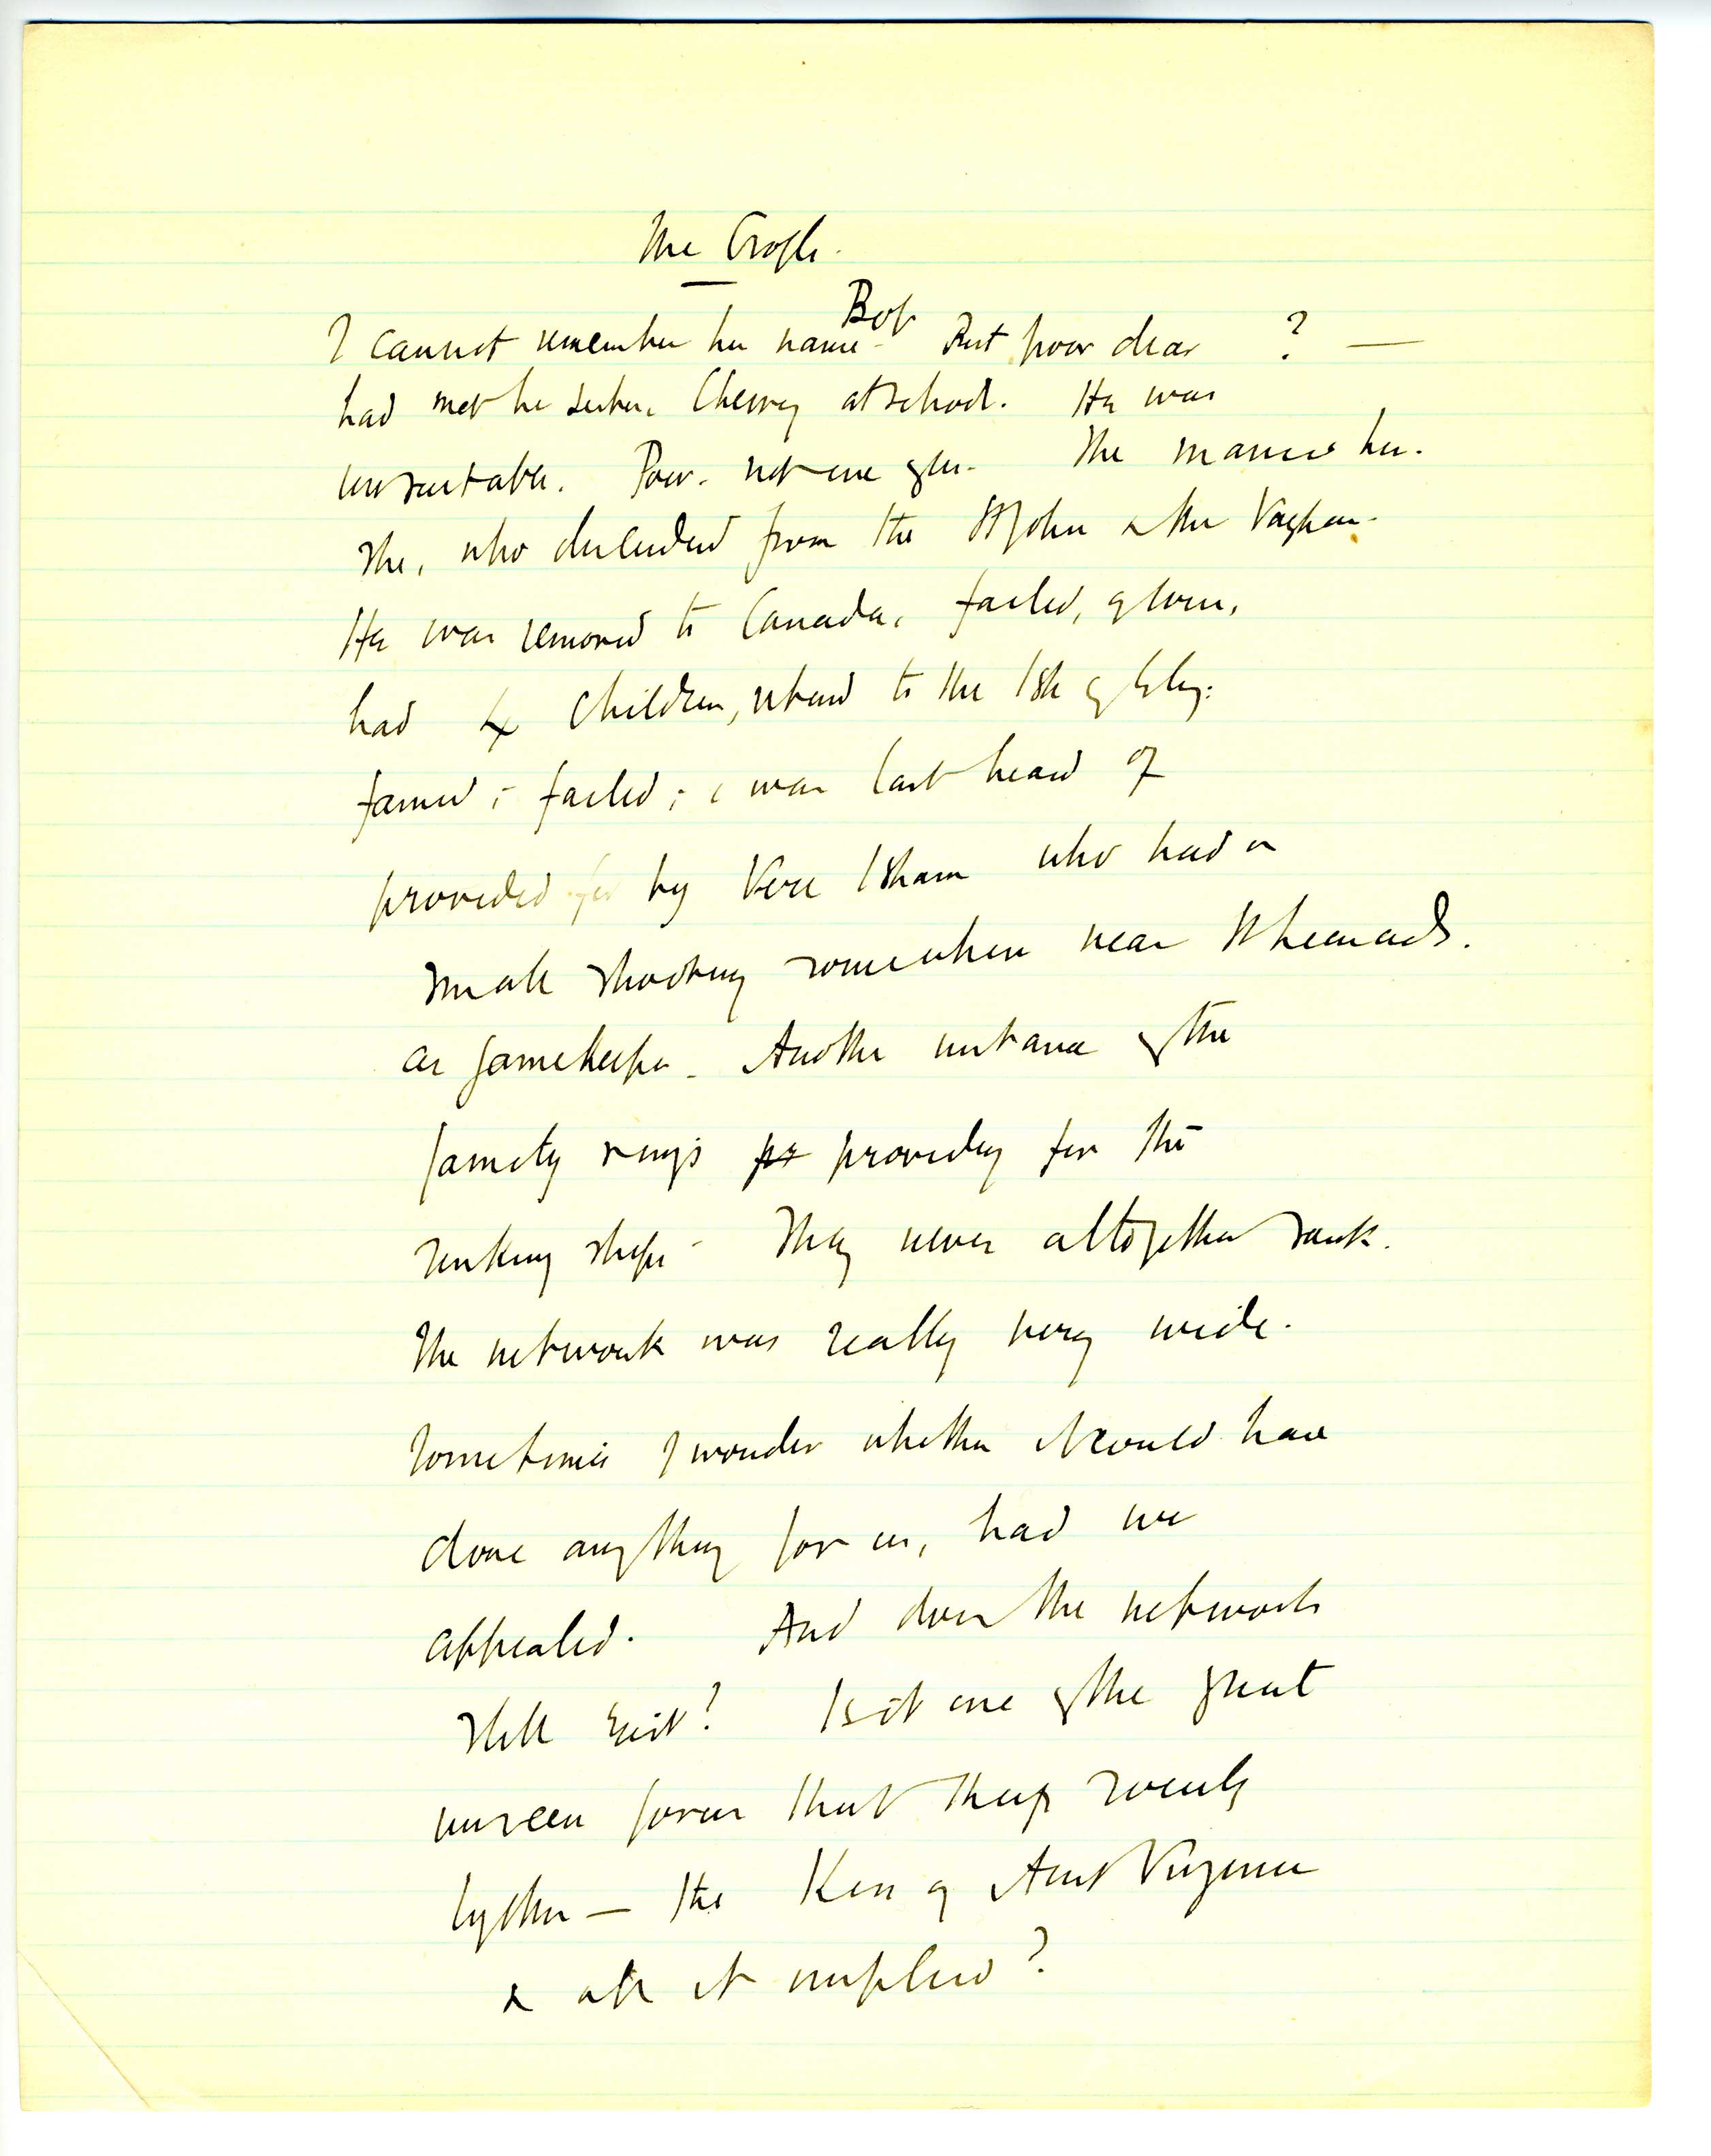 The Crofts.
Bop
I cannot remember her name - But poor dear ? —
had met he Cherry at school. He was
unsuitable. Poor. not one of us. The married her.
She, who descended from the St John & the Vaghan.
He was removed to Canada, failed, of course,
had 4 children, returned to the Isle of Ely:
farmed; failed; & was last heard of
provided for by Vere Isham who had a
small shooting somewhere near St Leonards.
as gamekeeper. Another instance of the
family ways pr providing for the
sinking ships - They never altogether sank.
The network was really very wide.
Sometimes I wonder whether it would have
done anything for us, had we
appealed. And does the network
still exist? Is it one of the great
unseen forces that keeps society
together — the Kin of Aunt Virginia
& all it implied?